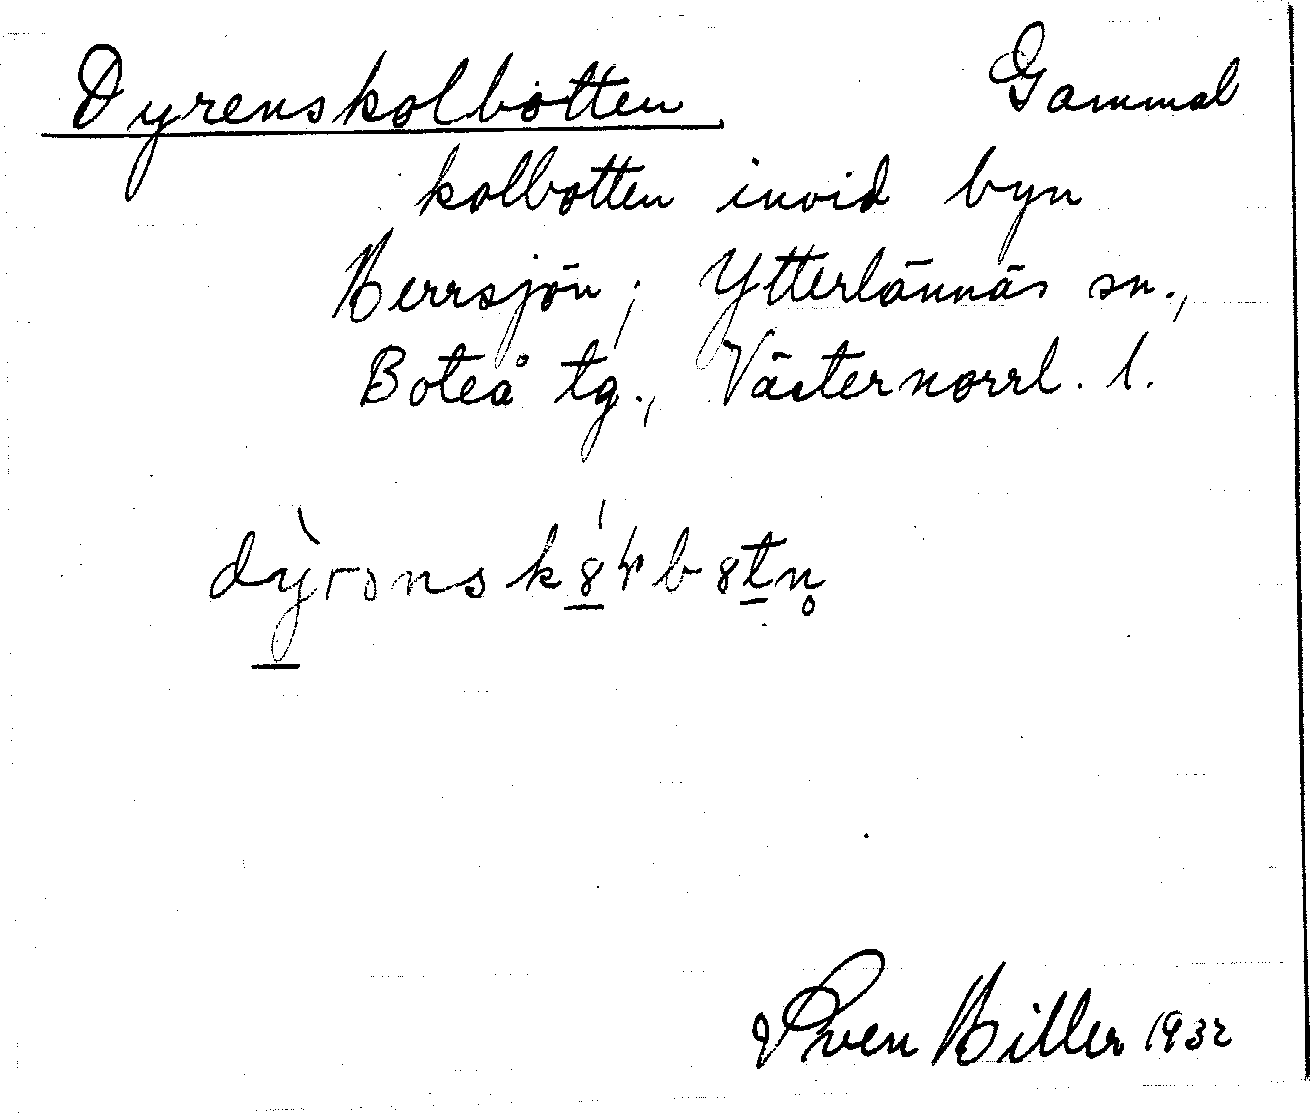 Dyrenskolbotten Gammal
kolbotten invid byn
Herrsjön, Ytterlännäs sn.,
Boteå tg., Västernorrl. l.
Sven Hiller 1932